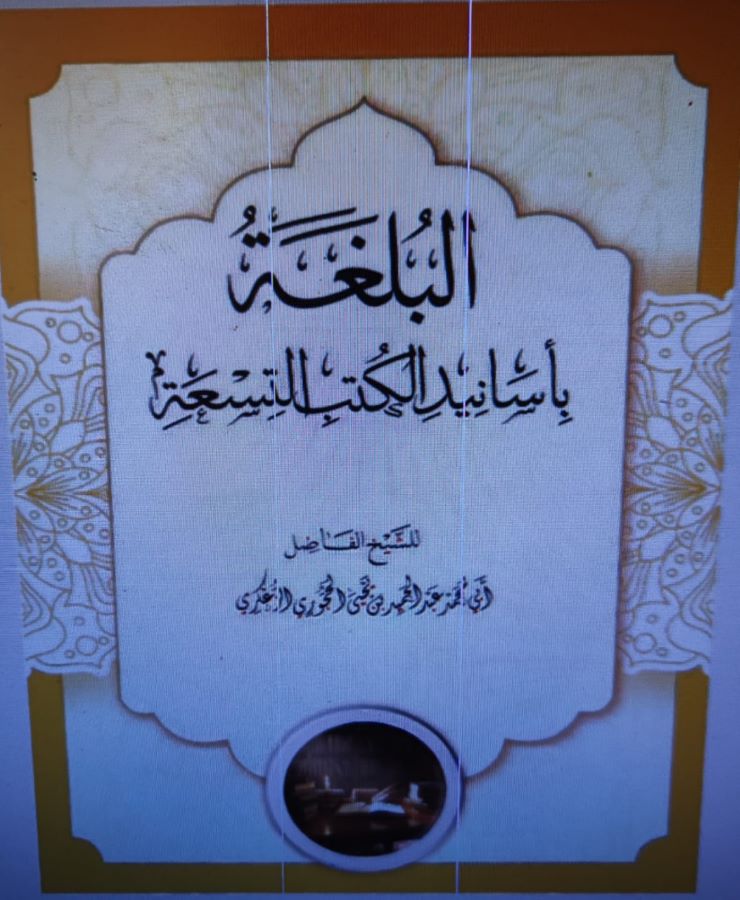 البُلغَةُ
بِأَسَانِيدِ الكُتبِ التِسْعَةِ
للشَّيْخِ الفَاضِل
أَبي مُحَمَّد عَبْد الحَمِيد بن يَحْيَى الحَجُورِي الزُّعْكُرِي